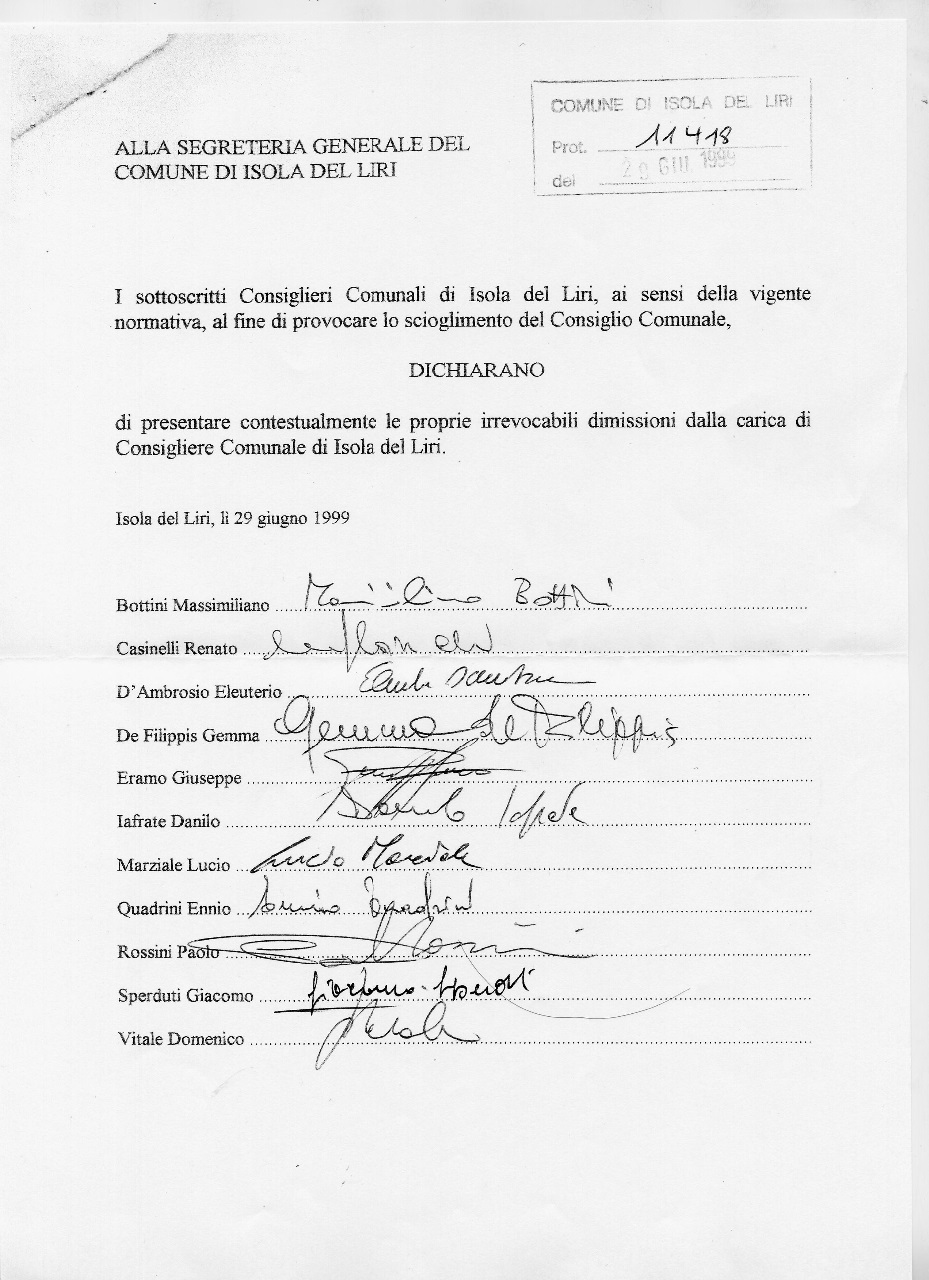 COMUNE DI ISOLA DEL LIRI
Prot. 11418
del 29 GIU. 1999
ALLA SEGRETERIA GENERALE DEL
COMUNE DI ISOLA DEL LIRI
I sottoscritti Consiglieri Comunali di Isola del Liri, ai sensi della vigente
normativa, al fine di provocare lo scioglimento del Consiglio Comunale,
DICHIARANO
di presentare contestualmente le proprie irrevocabili dimissioni dalla carica di
Consigliere Comunale di Isola del Liri.
Isola del Liri, lì 29 giugno 1999
Bottini Massimiliano Massimiliano Bottini
Casinelli Renato
D'Ambrosio Eleuterio
De Filippis Gemma Gemma De Filippis
Eramo Giuseppe
Iafrate Danilo Danilo Iafrate
Marziale Lucio Lucio Marziale
Quadrini Ennio Ennio Quadrini
Rossini Paolo
Sperduti Giacomo
Vitale Domenico